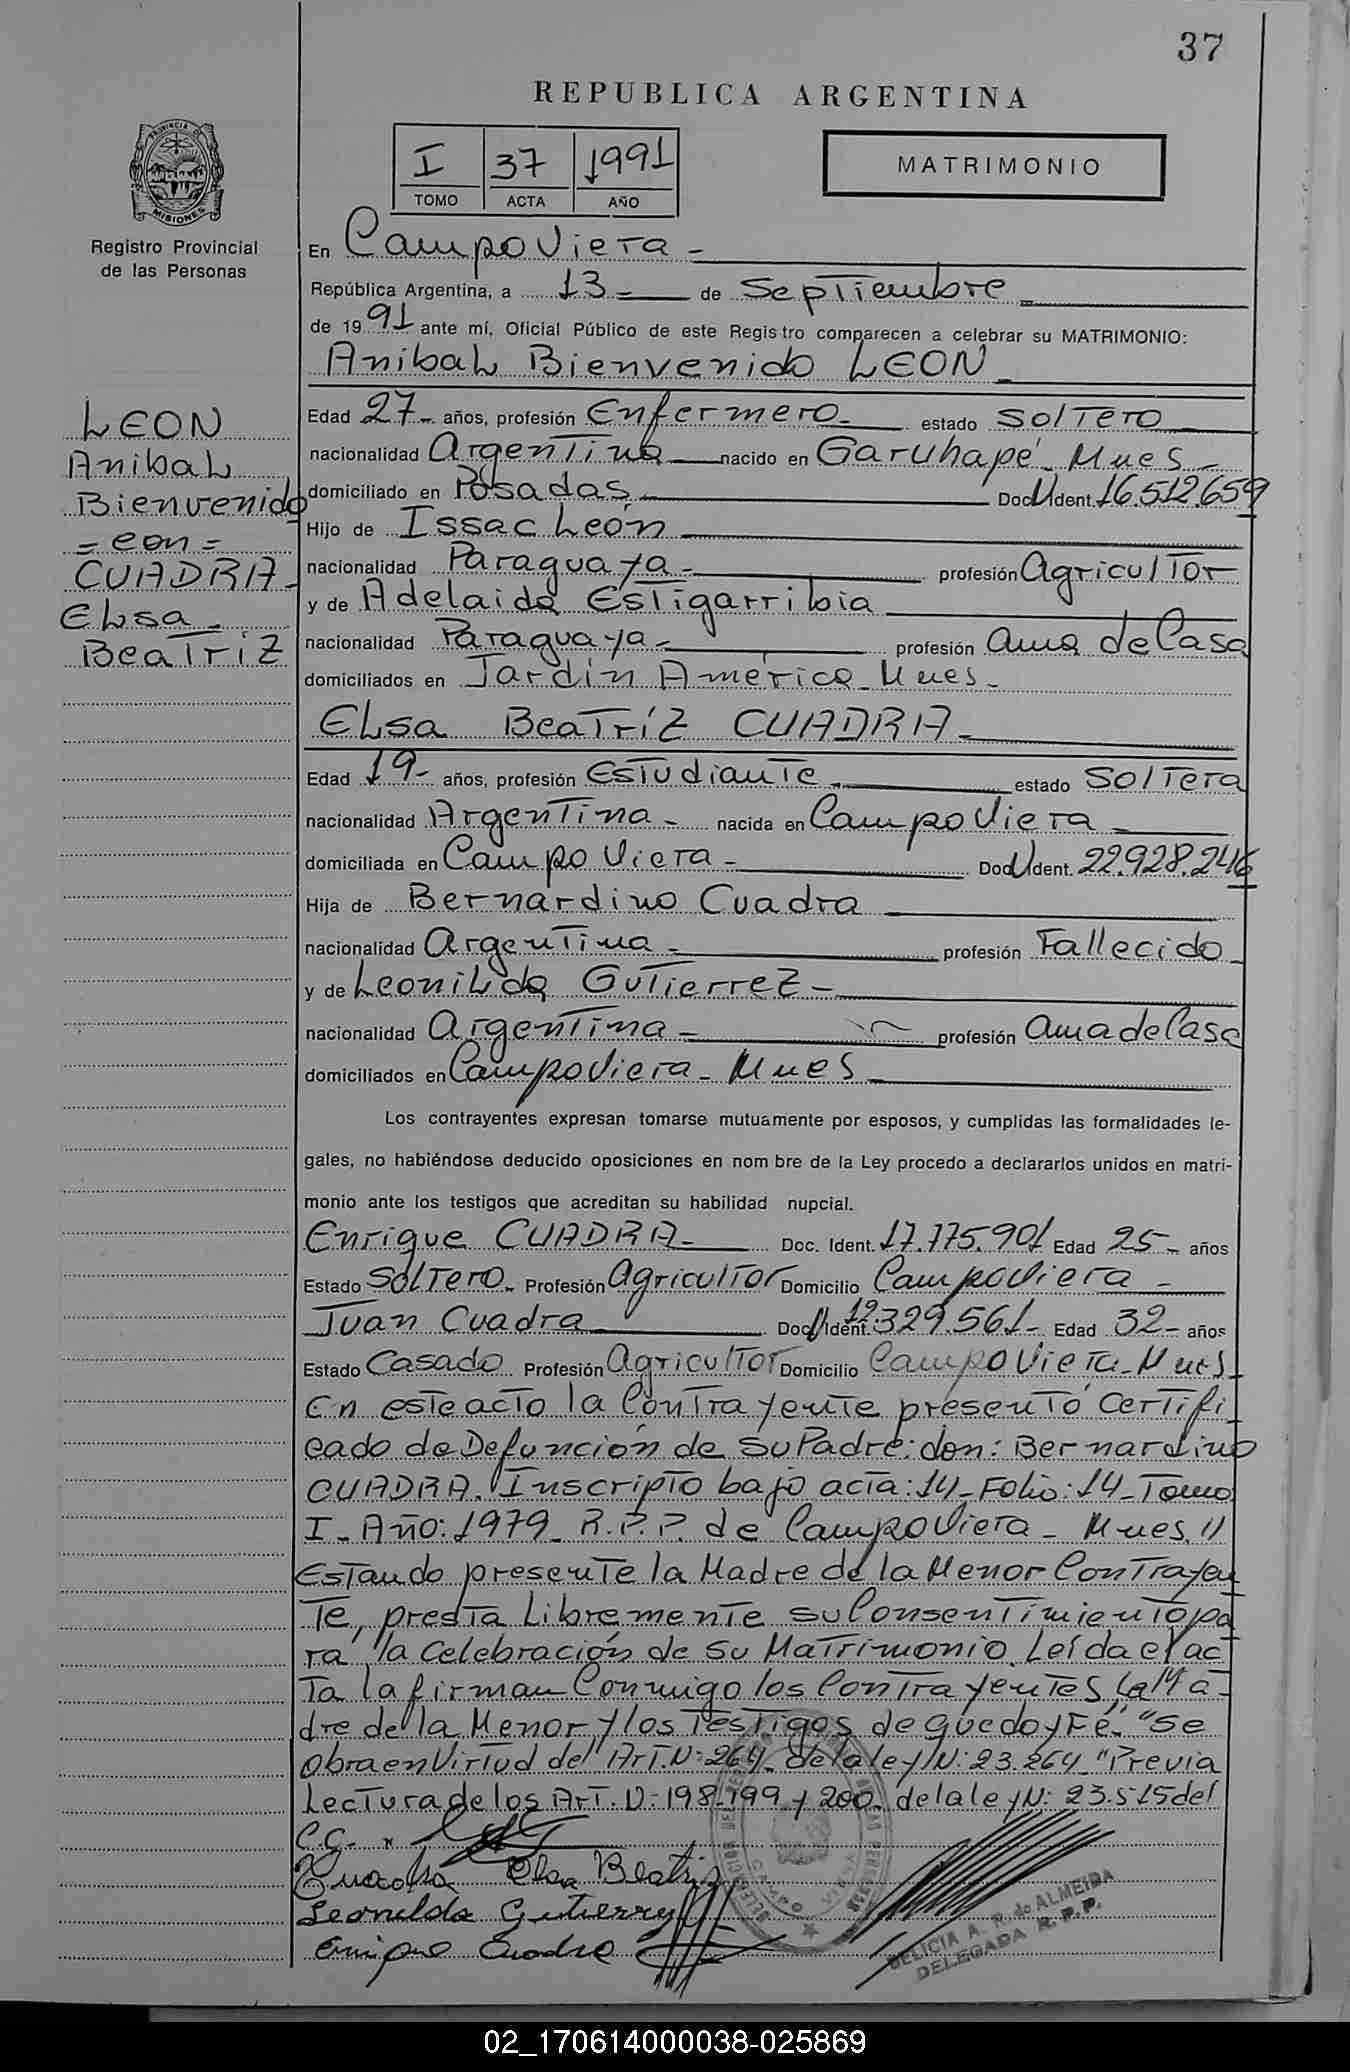 37
REPUBLICA ARGENTINA
I 37 1991
TOMO ACTA AÑO
MATRIMONIO
PROVINCIA DE MISIONES
Registro Provincial
de las Personas
En Campo Viera -
República Argentina, a 13 - de Septiembre
de 1991 ante mí, Oficial Público de este Registro comparecen a celebrar su MATRIMONIO:
Anibal Bienvenido LEON
LEON
Anibal
Bienvenido
= con =
CUADRA -
Elsa -
Beatríz
Edad 27 - años, profesión Enfermero - estado Soltero
nacionalidad Argentina nacido en Garuhapé - Mnes -
domiciliado en Posadas Doc. U Ident. 16.512.659
Hijo de Issac León
nacionalidad Paraguaya - profesión Agricultor
y de Adelaida Estigarribia
nacionalidad Paraguaya - profesión ama de Casa
domiciliados en Jardín América - Mnes -
Elsa Beatríz CUADRA -
Edad 19 - años, profesión Estudiante - estado Soltera
nacionalidad Argentina - nacida en Campo Viera -
domiciliada en Campo Viera - Doc. U Ident. 22.928.246
Hija de Bernardino Cuadra
nacionalidad Argentina - profesión Fallecido -
y de Leonilda Gutierrez -
nacionalidad Argentina - profesión ama de Casa
domiciliados en Campo Viera - Mnes
Los contrayentes expresan tomarse mutuamente por esposos, y cumplidas las formalidades le-
gales, no habiéndose deducido oposiciones en nom bre de la Ley procedo a declararlos unidos en matri-
monio ante los testigos que acreditan su habilidad nupcial.
Enrique CUADRA - Doc. Ident. 17.775.901 Edad 25 - años
Estado Soltero - Profesión agricultor Domicilio Campo Viera -
Juan Cuadra Doc. U Ident. 12.329.561 - Edad 32 - años
Estado Casado Profesión agricultor Domicilio Campo Viera - Mnes -
En este acto la Contrayente presentó Certifi-
cado de Defunción de su Padre: don: Bernardino
CUADRA. Inscripto bajo acta: 14 - Folio: 14 - Tomo
I - Año: 1979 - R.P.P. de Campo Viera - Mnes. //
Estando presente la Madre de la Menor Contrayen-
te, presta Libremente su Consentimiento pa-
ra la Celebración de su Matrimonio. Leída el ac-
ta la firman Conmigo los Contrayentes, La Ma-
dre de la Menor y los Testigos de que doy Fé. "Se
obra en Virtud del Art. N: 264 - de la ley N: 23.264 - "Previa
Lectura de los Art. N: 198 - 199 y 200 - de la ley N: 23.515 del
C.C. "
Cuadra Elsa Beatriz
Leonilda Gutierrez
Enrique Cuadra
DELICIA A. R. de ALMEIDA
DELEGADA R. P. P.
02_170614000038-025869